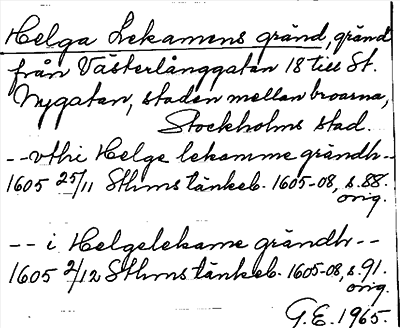 Helga Lekamens gränd, gränd
från Västerlånggatan 18 till St.
Nygatan, staden mellan broarna,
Stockholms stad.
-- vthi Helge lekamme grändh --
1605 25/11 Sthms tänkeb. 1605-08, s. 88.
orig.
-- i Helgelekame grändh --
1605 2/12 Sthms tänkeb. 1605-08, s. 91.
orig.
G.E. 1965.